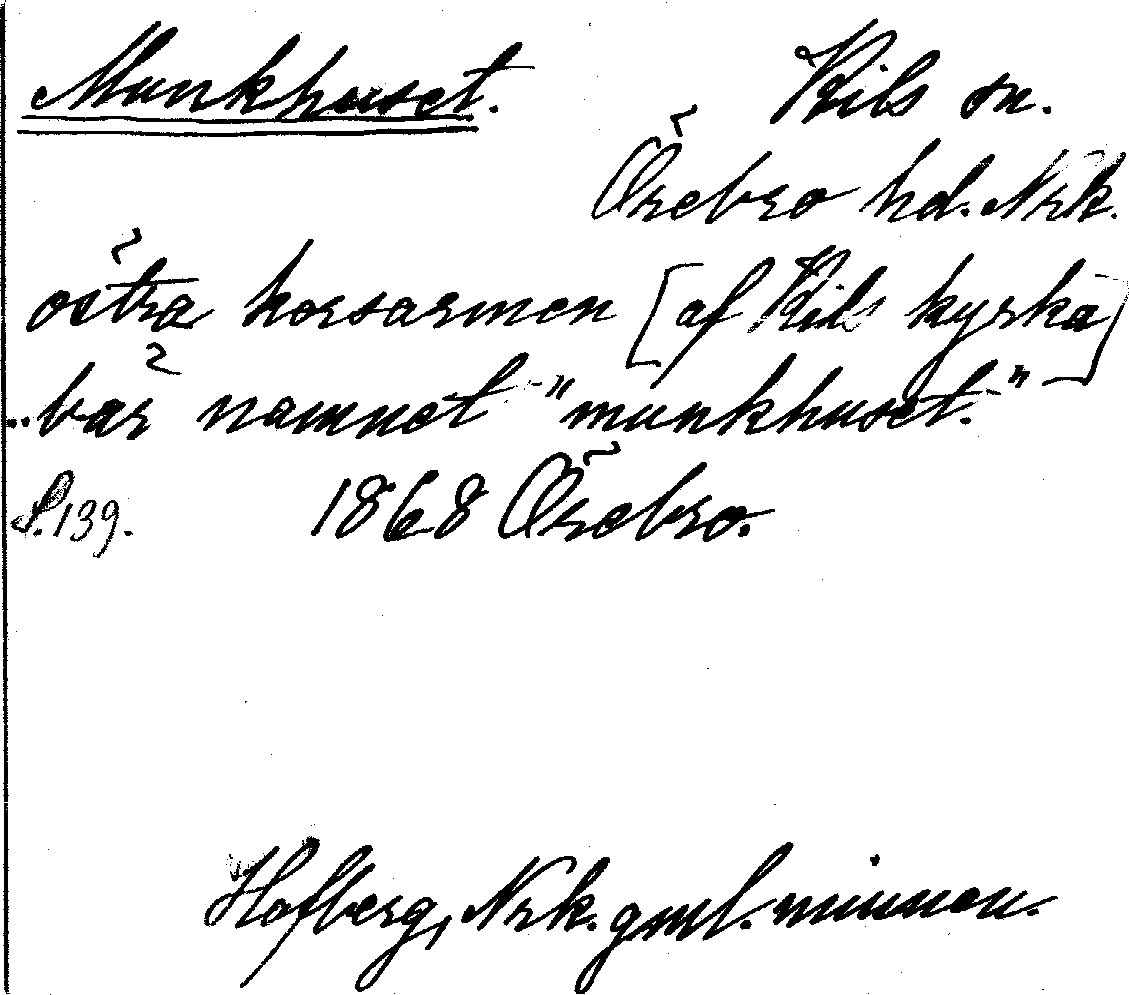 Munkhuset. Kils sn.
Örebro hd. Nrk.
östra korsarmen [af Kils kyrka]
..bär namnet "munkhuset."
S.139. 1868 Örebro.
Hofberg, Nrk. gml. minnen.